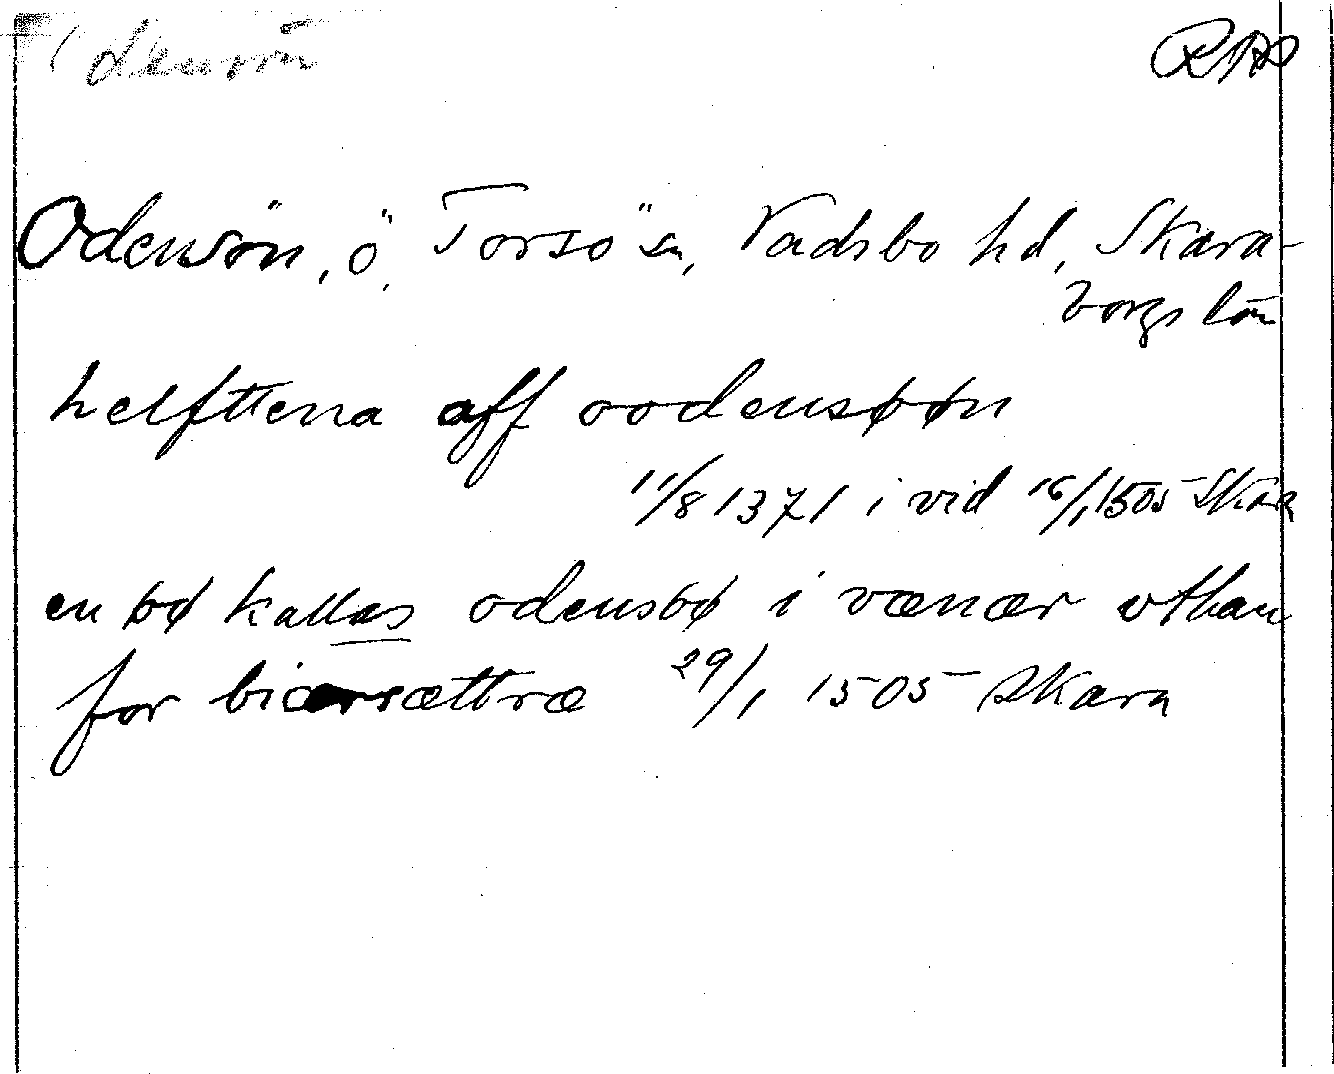 Odensön RAP
Odensön, ö, Torsö sn, Vadsbo hd, Skara-
borgs län
helfttena aff oodensøøn
11/8 1371 i vid 16/1 1505 Skara
en øø kallas odensøø i værnær vthan
for biærsættræ 29/1 1505 Skara